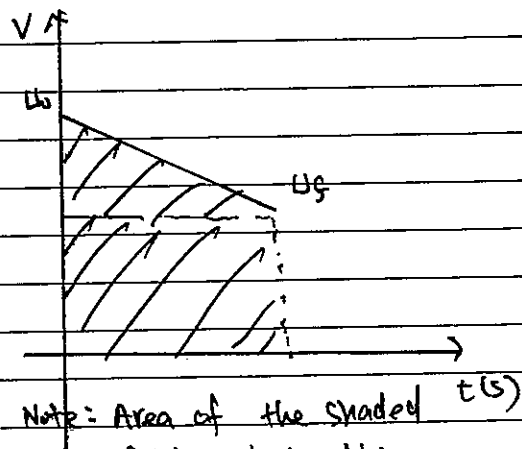 V
U₀
Uf
t(s)
Note: Area of the shaded